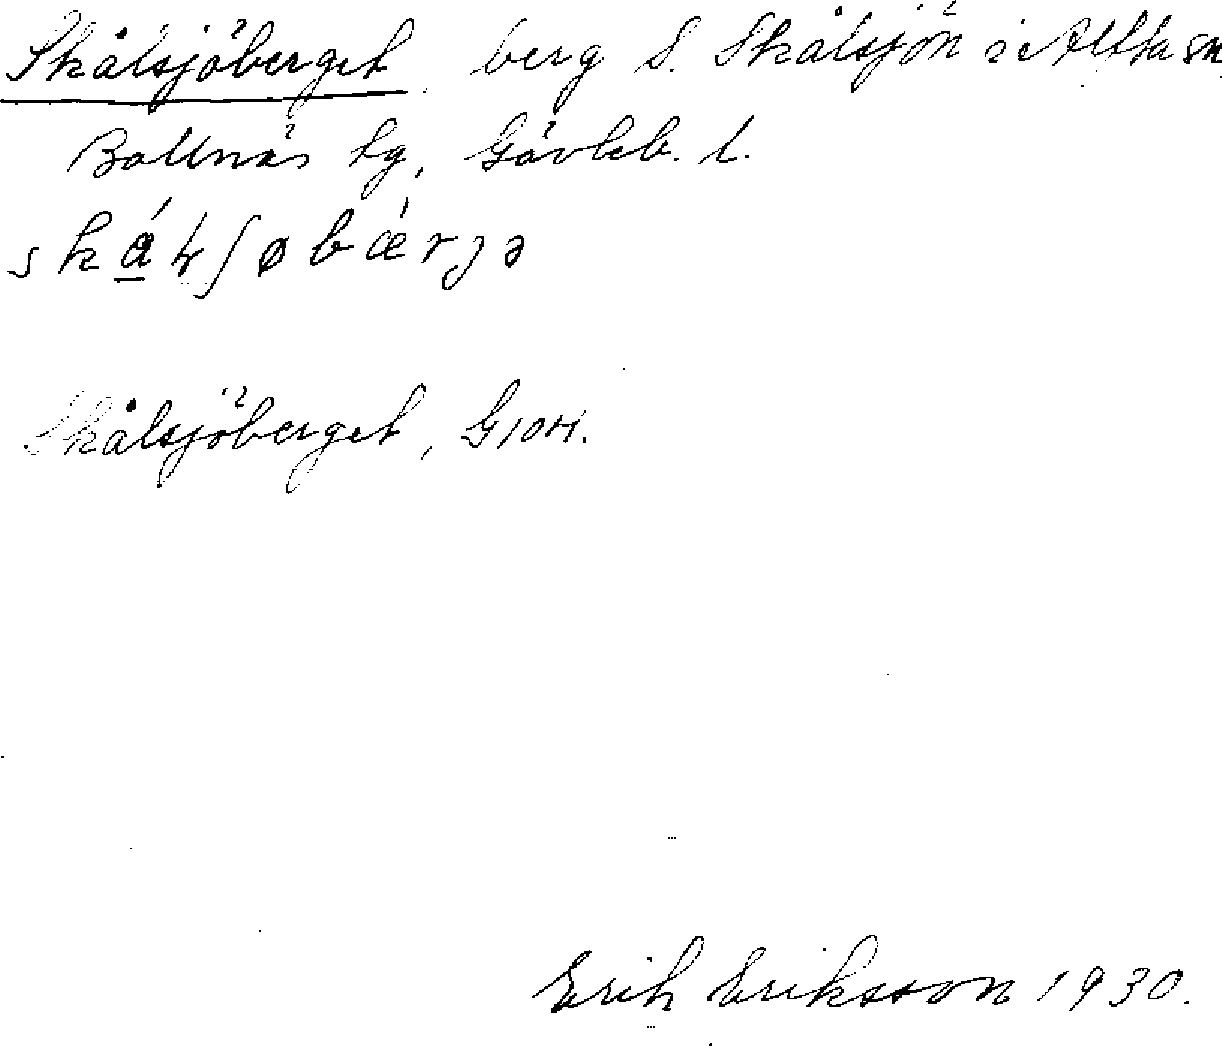 Skålsjöberget berg S. Skålsjön i Alfta sn
Bollnäs tg, Gävleb. l.
Skålsjöberget, G104.
Erik Eriksson 1930.